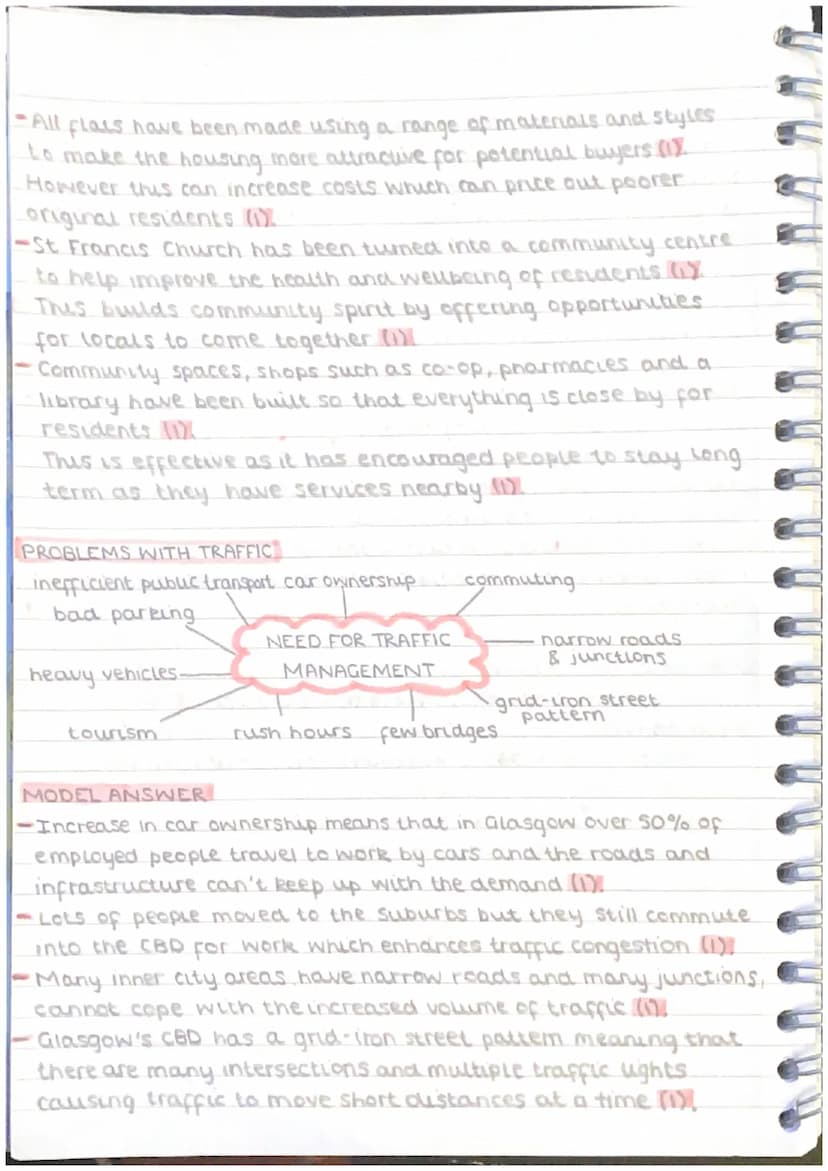 - All flats have been made using a range of materials and styles
to make the housing more attractive for potential buyers (1).
However this can increase costs which can price out poorer
original residents (1).
- St Francis Church has been turned into a community centre
to help improve the health and wellbeing of residents (1).
This builds community spirit by offering opportunities
for locals to come together (1).
- Community spaces, shops such as co-op, pharmacies and a
library have been built so that everything is close by for
residents (1).
This is effective as it has encouraged people to stay long
term as they have services nearby (1).
PROBLEMS WITH TRAFFIC
inefficient public transport car ownership commuting
bad parking
NEED FOR TRAFFIC
MANAGEMENT
narrow roads
& junctions
heavy vehicles
grid-iron street
pattern
tourism rush hours few bridges
MODEL ANSWER
- Increase in car ownership means that in Glasgow over 50% of
employed people travel to work by cars and the roads and
infrastructure can't keep up with the demand (1).
- Lots of people moved to the suburbs but they still commute
into the CBD for work which enhances traffic congestion (1).
- Many inner city areas have narrow roads and many junctions,
cannot cope with the increased volume of traffic (1).
- Glasgow's CBD has a grid-iron street pattern meaning that
there are many intersections and multiple traffic lights
causing traffic to move short distances at a time (1).